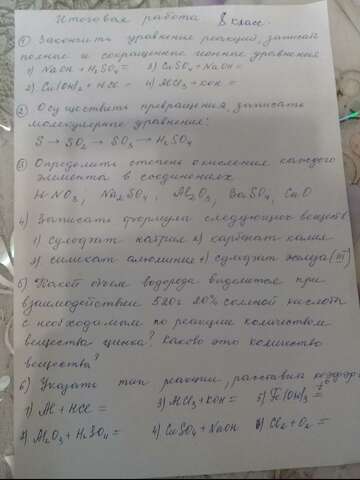 Итоговая работа 8 класс.
1) Закончить уравнение реакций, записать
полные и сокращенные ионные уравнения
1) NaOH + H₂SO₄ = 3) CuSO₄ + NaOH =
2) Cu(OH)₂ + HCl = 4) AlCl₃ + KOH =
2) Осуществить превращения, записать
молекулярные уравнения:
S → SO₂ → SO₃ → H₂SO₄
3) Определить степень окисления каждого
элемента в соединениях
HNO₃, Na₂SO₄, Al₂O₃, BaSO₄, CuO
4) Записать формулы следующих веществ
1) сульфат натрия 2) карбонат калия
3) силикат алюминия 4) сульфат железа (III)
5) Какой объем водорода выделится при
взаимодействии 520г 20% соляной кислоты
с необходимым по реакции количеством
вещества цинка? Каково это количество
вещества?
6) Указать тип реакции, расставить
1) Al + HCl = 3) AlCl₃ + KOH = 5) Fe(OH)₃ =
2) Al₂O₃ + H₂SO₄ = 4) CuSO₄ + NaOH 6) Cl₂ + O₂ =